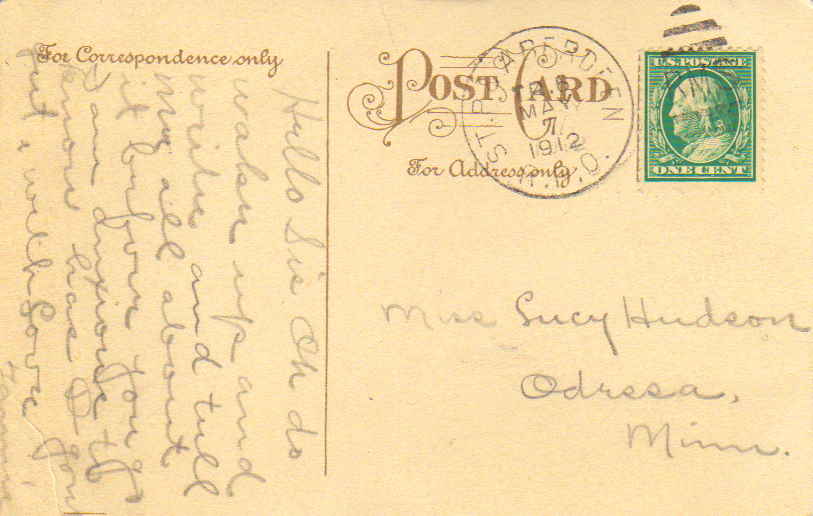 For Correspondence only
POST CARD
For Address only
ST. P. & ABERDEEN
MAY
7
1912
R.P.O.
U.S. POSTAGE
ONE CENT
Hello Sis. Oh do
wake up and
write and tell
me all about
it before you go
I am anxious to
know has
but with Love,
Miss Lucy Hudson
Odessa,
Minn.